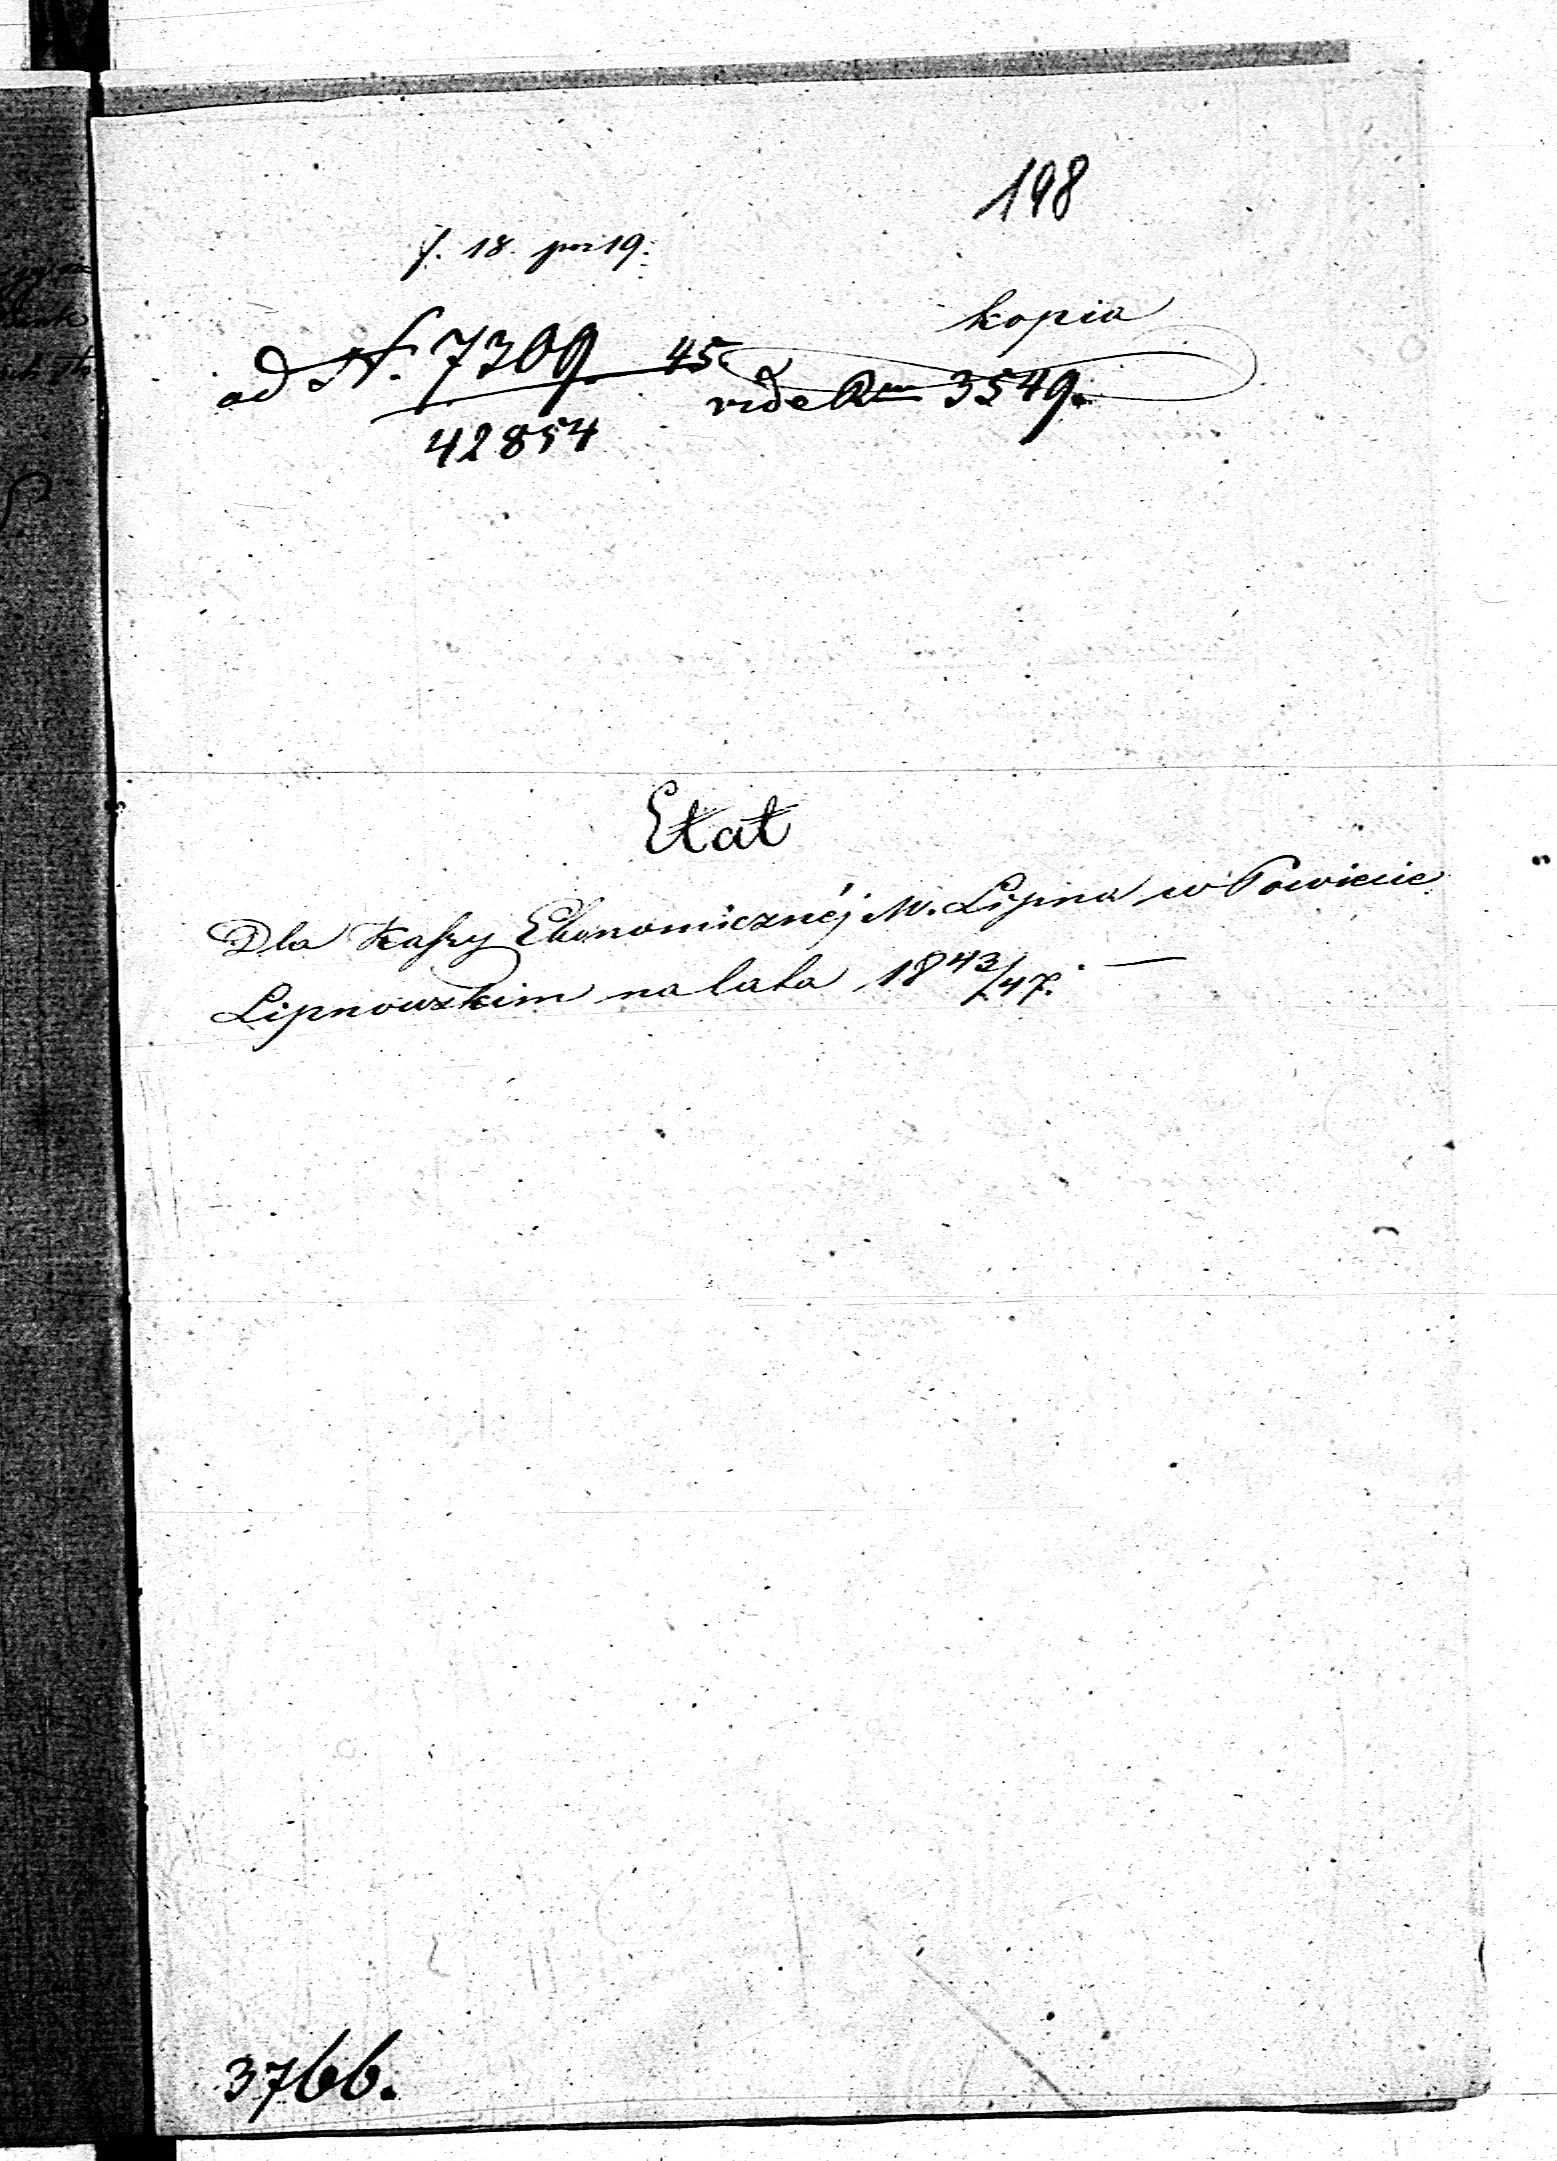 198
f. 18. poz 19.
kopia
ad N. 7309 45
42854
vide 3549.
Etat
Dla Kassy Ekonomicznéj M. Lipna w Powiecie
Lipnowskim na lata 1843/47.
3766.